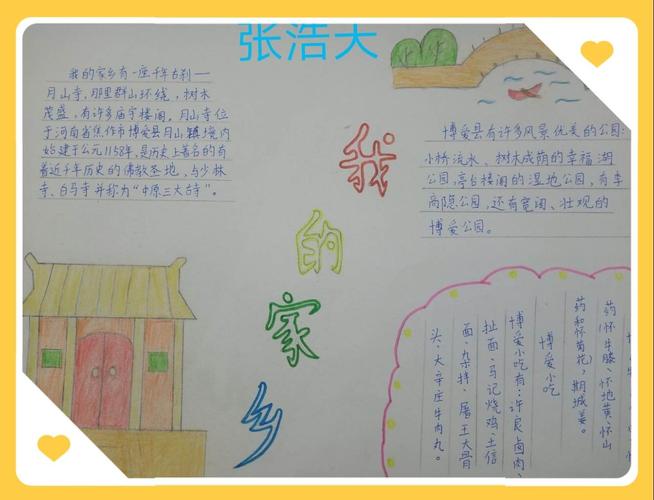 张浩天
我的家乡有一座千年古刹一
月山寺,那里群山环绕,树木
茂盛,有许多庙宇楼阁。月山寺位
于河南省焦作市博爱县月山镇境内
始建于公元1158年,是历史上著名的有
着近千年历史的佛教圣地,与少林
寺、白马寺并称为“中原三大古寺”。
我的家乡
博爱县有许多风景优美的公园:
小桥流水、树木成荫的幸福湖
公园,亭台楼阁的湿地公园,有李
商隐公园,还有宽阔、壮观的
博爱公园。
药(怀牛膝、怀地黄、怀山
药和怀菊花),期城姜。
博爱小吃
博爱小吃有:许良卤肉、
扯面、马记烧鸡、土信
面、杂拌、屠王大骨
头、大辛庄牛肉丸。